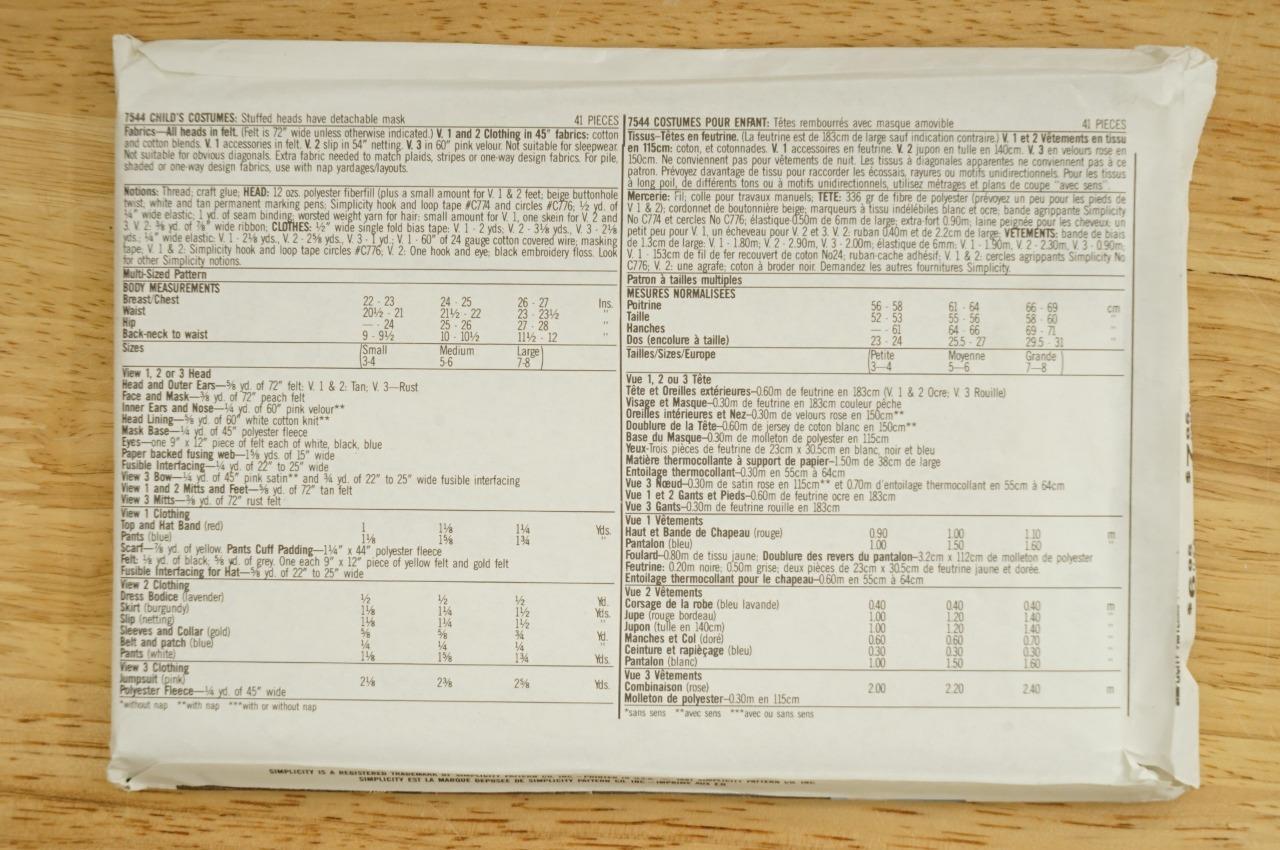 7544 CHILD'S COSTUMES: Stuffed heads have detachable mask 41 PIECES
Fabrics—All heads in felt. (Felt is 72" wide unless otherwise indicated.) V. 1 and 2 Clothing in 45" fabrics: cotton
and cotton blends. V. 1 accessories in felt. V. 2 slip in 54" netting. V. 3 in 60" pink velour. Not suitable for sleepwear.
Not suitable for obvious diagonals. Extra fabric needed to match plaids, stripes or one-way design fabrics. For pile,
shaded or one-way design fabrics, use with nap yardages/layouts.
Notions: Thread; craft glue; HEAD: 12 ozs. polyester fiberfill (plus a small amount for V. 1 & 2 feet; beige buttonhole
twist; white and tan permanent marking pens; Simplicity hook and loop tape #C774 and circles #C776; ½ yd. of
¼" wide elastic; 1 yd. of seam binding; worsted weight yarn for hair: small amount for V. 1, one skein for V. 2 and
3. V. 2: ⅜ yd. of ⅞" wide ribbon; CLOTHES: ½" wide single fold bias tape: V. 1 - 2 yds; V. 2 - 3⅛ yds., V. 3 - 2⅛
yds.; ¼" wide elastic: V. 1 - 2⅛ yds., V. 2 - 2⅝ yds., V. 3 - 1 yd.; V. 1 - 60" of 24 gauge cotton covered wire; masking
tape; V. 1 & 2: Simplicity hook and loop tape circles #C776; V. 2: One hook and eye; black embroidery floss. Look
for other Simplicity notions.
Multi-Sized Pattern
BODY MEASUREMENTS
Breast/Chest 22 - 23 24 - 25 26 - 27 Ins.
Waist 20½ - 21 21½ - 22 23 - 23½ "
Hip — - 24 25 - 26 27 - 28 "
Back-neck to waist 9 - 9½ 10 - 10½ 11½ - 12 "
Sizes Small Medium Large
3-4 5-6 7-8
View 1, 2 or 3 Head
Head and Outer Ears—⅝ yd. of 72" felt: V. 1 & 2: Tan; V. 3—Rust
Face and Mask—⅜ yd. of 72" peach felt
Inner Ears and Nose—¼ yd. of 60" pink velour**
Head Lining—⅝ yd. of 60" white cotton knit**
Mask Base—¼ yd. of 45" polyester fleece
Eyes—one 9" x 12" piece of felt each of white, black, blue
Paper backed fusing web—1⅝ yds. of 15" wide
Fusible Interfacing—¼ yd. of 22" to 25" wide
View 3 Bow—¼ yd. of 45" pink satin** and ¾ yd. of 22" to 25" wide fusible interfacing
View 1 and 2 Mitts and Feet—⅝ yd. of 72" tan felt
View 3 Mitts—⅜ yd. of 72" rust felt
View 1 Clothing
Top and Hat Band (red) 1 1⅛ 1¼ Yds.
Pants (blue) 1⅛ 1⅝ 1¾ "
Scarf—⅞ yd. of yellow. Pants Cuff Padding—1¼" x 44" polyester fleece
Felt: ⅛ yd. of black, ⅝ yd. of grey. One each 9" x 12" piece of yellow felt and gold felt
Fusible Interfacing for Hat—⅝ yd. of 22" to 25" wide
View 2 Clothing
Dress Bodice (lavender) ½ ½ ½ Yd.
Skirt (burgundy) 1⅛ 1¼ 1½ Yds.
Slip (netting) 1⅛ 1¼ 1½ "
Sleeves and Collar (gold) ⅝ ⅝ ¾ Yd.
Belt and patch (blue) ¼ ¼ ¼ "
Pants (white) 1⅛ 1⅝ 1¾ Yds.
View 3 Clothing
Jumpsuit (pink) 2⅛ 2⅜ 2⅝ Yds.
Polyester Fleece—¼ yd. of 45" wide
*without nap **with nap ***with or without nap
7544 COSTUMES POUR ENFANT: Têtes rembourrés avec masque amovible 41 PIECES
Tissus-Têtes en feutrine. (La feutrine est de 183cm de large sauf indication contraire.) V. 1 et 2 Vêtements en tissu
en 115cm: coton, et cotonnades. V. 1 accessoires en feutrine. V. 2 jupon en tulle en 140cm. V. 3 en velours rose en
150cm. Ne conviennent pas pour vêtements de nuit. Les tissus à diagonales apparentes ne conviennent pas à ce
patron. Prévoyez davantage de tissu pour raccorder les écossais, rayures ou motifs unidirectionnels. Pour les tissus
à long poil, de différents tons ou à motifs unidirectionnels, utilisez métrages et plans de coupe "avec sens".
Mercerie: Fil; colle pour travaux manuels; TETE: 336 gr de fibre de polyester (prévoyez un peu pour les pieds de
V. 1 & 2); cordonnet de boutonnière beige; marqueurs à tissu indélébiles blanc et ocre; bande agrippante Simplicity
No C774 et cercles No C776; élastique-0.50m de 6mm de large; extra-fort 0.90m; laine peignée pour les cheveux: un
petit peu pour V. 1, un écheveau pour V. 2 et 3. V. 2: ruban 0.40m et de 2.2cm de large; VETEMENTS: bande de biais
de 1.3cm de large: V. 1 - 1.80m; V. 2 - 2.90m, V. 3 - 2.00m; élastique de 6mm: V. 1 - 1.90m, V. 2 - 2.30m, V. 3 - 0.90m;
V. 1 - 153cm de fil de fer recouvert de coton No24; ruban-cache adhésif; V. 1 & 2: cercles agrippants Simplicity No
C776; V. 2: une agrafe; coton à broder noir. Demandez les autres fournitures Simplicity.
Patron à tailles multiples
MESURES NORMALISEES
Poitrine 56 - 58 61 - 64 66 - 69 cm
Taille 52 - 53 55 - 56 58 - 60 "
Hanches — - 61 64 - 66 69 - 71 "
Dos (encolure à taille) 23 - 24 25.5 - 27 29.5 - 31 "
Tailles/Sizes/Europe Petite Moyenne Grande
3—4 5—6 7—8
Vue 1, 2 ou 3 Tête
Tête et Oreilles extérieures-0.60m de feutrine en 183cm (V. 1 & 2 Ocre; V. 3 Rouille)
Visage et Masque-0.30m de feutrine en 183cm couleur pêche
Oreilles intérieures et Nez-0.30m de velours rose en 150cm**
Doublure de la Tête-0.60m de jersey de coton blanc en 150cm**
Base du Masque-0.30m de molleton de polyester en 115cm
Yeux-Trois pièces de feutrine de 23cm x 30.5cm en blanc, noir et bleu
Matière thermocollante à support de papier-1.50m de 38cm de large
Entoilage thermocollant-0.30m en 55cm à 64cm
Vue 3 Nœud-0.30m de satin rose en 115cm** et 0.70m d'entoilage thermocollant en 55cm à 64cm
Vue 1 et 2 Gants et Pieds-0.60m de feutrine ocre en 183cm
Vue 3 Gants-0.30m de feutrine rouille en 183cm
Vue 1 Vêtements
Haut et Bande de Chapeau (rouge) 0.90 1.00 1.10 m
Pantalon (bleu) 1.00 1.50 1.60 "
Foulard-0.80m de tissu jaune; Doublure des revers du pantalon-3.2cm x 112cm de molleton de polyester
Feutrine: 0.20m noire; 0.50m grise; deux pièces de 23cm x 30.5cm de feutrine jaune et dorée.
Entoilage thermocollant pour le chapeau-0.60m en 55cm à 64cm
Vue 2 Vêtements
Corsage de la robe (bleu lavande) 0.40 0.40 0.40 m
Jupe (rouge bordeau) 1.00 1.20 1.40 "
Jupon (tulle en 140cm) 1.00 1.20 1.40 "
Manches et Col (doré) 0.60 0.60 0.70 "
Ceinture et rapièçage (bleu) 0.30 0.30 0.30 "
Pantalon (blanc) 1.00 1.50 1.60 "
Vue 3 Vêtements
Combinaison (rose) 2.00 2.20 2.40 m
Molleton de polyester-0.30m en 115cm
*sans sens **avec sens ***avec ou sans sens
SIMPLICITY IS A REGISTERED TRADEMARK OF SIMPLICITY PATTERN CO. INC.
SIMPLICITY EST LA MARQUE DEPOSEE DE SIMPLICITY PATTERN CO. INC.